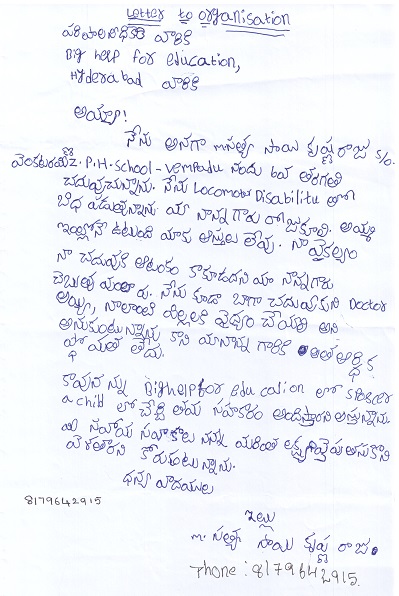 Letter to organisation
పరిపాలనాధికారి వారికి
Big help for education,
Hyderabad వారికి
అయ్యా!
నేను అనగా m సత్య సాయి కృష్ణ రాజు S/o.
వెంకటరమణ Z.P.H-school-vempadu నందు 6వ తరగతి
చదువుచున్నాను. నేను Locomotor Disability తో
బాధ పడుతున్నాను. మా నాన్న గారు రోజుకూలి. అమ్మ
ఇంట్లోనే ఉంటుంది మాకు ఆస్తులు లేవు. నా వైకల్యం
నా చదువుకి ఆటంకం కాకూడదని మా నాన్నగారు
చెబుతూ ఉంటారు. నేను కూడా బాగా చదువుకుని Doctor
అయ్యి, నాలాంటి పిల్లలకి వైద్యం చేయాలి అని
అనుకుంటున్నాను కాని మా నాన్న గారికి అంత ఆర్థిక
స్థోమత లేదు.
కావున నన్ను Bighelp for education లో sponsor
a child లో చేర్చి తమ సహకారం అందిస్తారని ఆశిస్తున్నాను.
మీ సహాయ సహకారాలు నన్ను మరింత లక్ష్యం వైపు తీసుకొని
వెళతారని కోరుకుంటున్నాను.
ధన్యవాదములు
8179642915
ఇట్లు
m. సత్య సాయి కృష్ణ రాజు.
Phone : 8179642915.